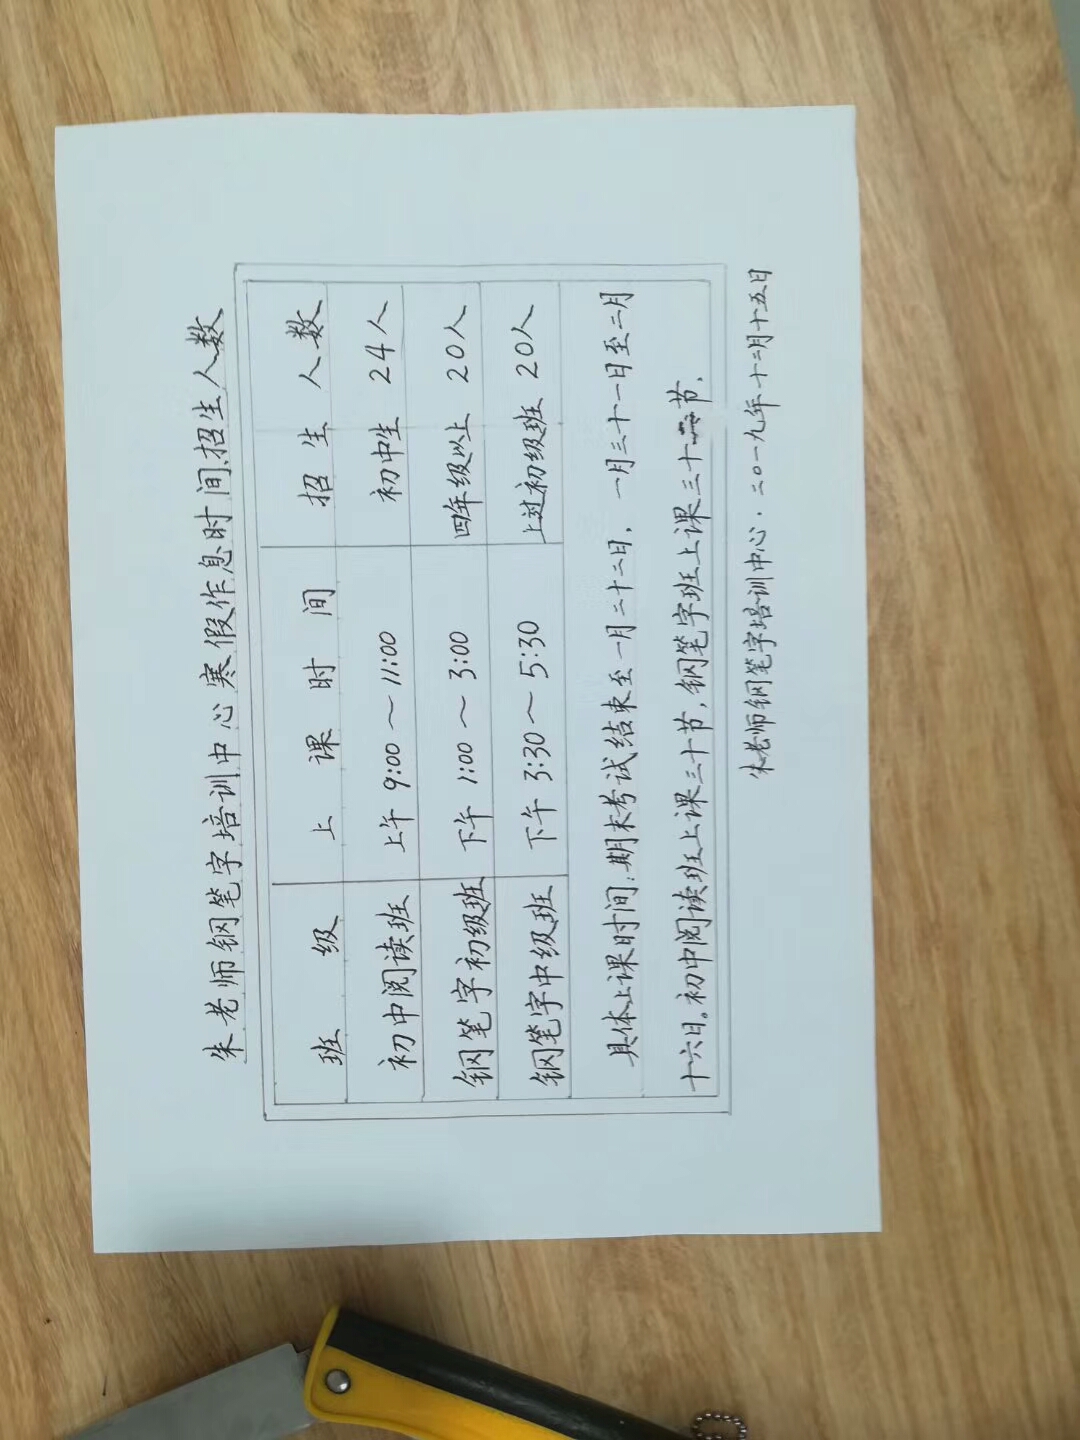 朱老师钢笔字培训中心寒假作息时间、招生人数
班 级 上 课 时 间 招 生 人 数
初中阅读班 上午 9:00～11:00 初中生 24人
钢笔字初级班 下午 1:00～3:00 四年级以上 20人
钢笔字中级班 下午 3:30～5:30 上过初级班 20人
具体上课时间:期末考试结束至一月二十二日，一月三十一日至二月
十六日。初中阅读班上课三十节，钢笔字班上课三十节.
朱老师钢笔字培训中心.二〇一九年十二月十五日